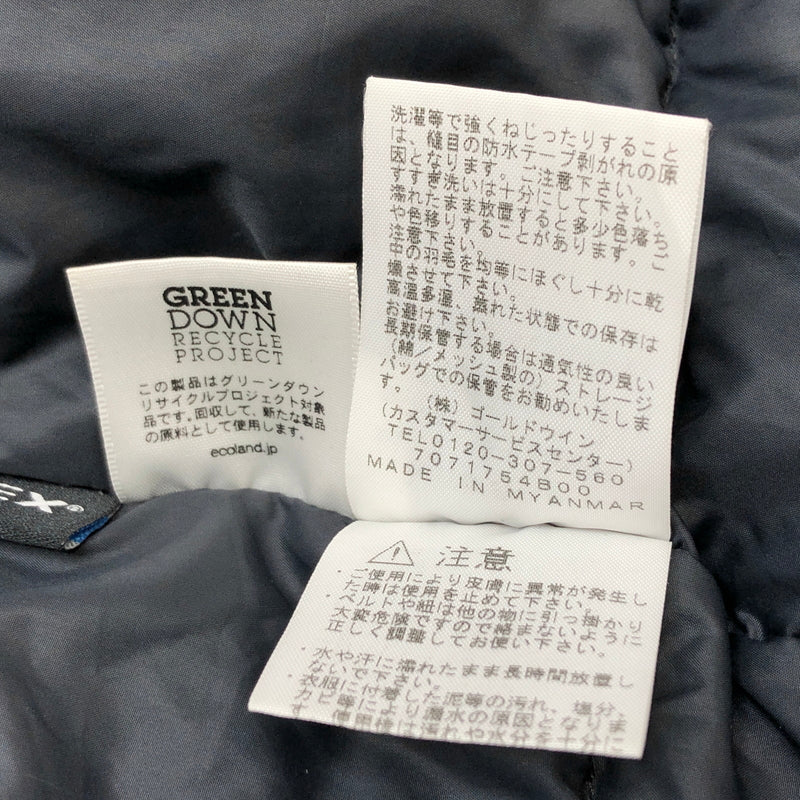 洗濯等で強くねじったりすること
は、縫目の防水テープ剥がれの原
因となります。ご注意下さい。
すすぎ洗いは十分にして下さい。
濡れたまま放置すると多少色落ち
や色移りすることがあります。ご
注意下さい。
中の羽毛を均等にほぐし十分に乾
燥させて下さい。
高温多湿、蒸れた状態での保存は
お避け下さい。
長期保管する場合は通気性の良い
(綿/メッシュ製の)ストレージ
バッグでの保管をお勧めいたしま
す。
(株)ゴールドウイン
(カスタマーサービスセンター)
TEL0120-307-560
7071754B00
MADE IN MYANMAR
GREEN
DOWN
RECYCLE
PROJECT
この製品はグリーンダウン
リサイクルプロジェクト対象
品です。回収して、新たな製品
の原料として使用します。
ecoland.jp
EX®
注意
・ご使用により皮膚に異常が発生し
た時は使用を止めて下さい。
・ベルトや紐は他の物に引っ掛かり
大変危険ですので絡まないように
正しく調整してお使い下さい。
・水や汗に濡れたまま長時間放置し
ないで下さい。
・衣服に付着した泥等の汚れ、塩分、
カビ等により漏水の原因となりま
す。使用後は汚れや水分を十分に